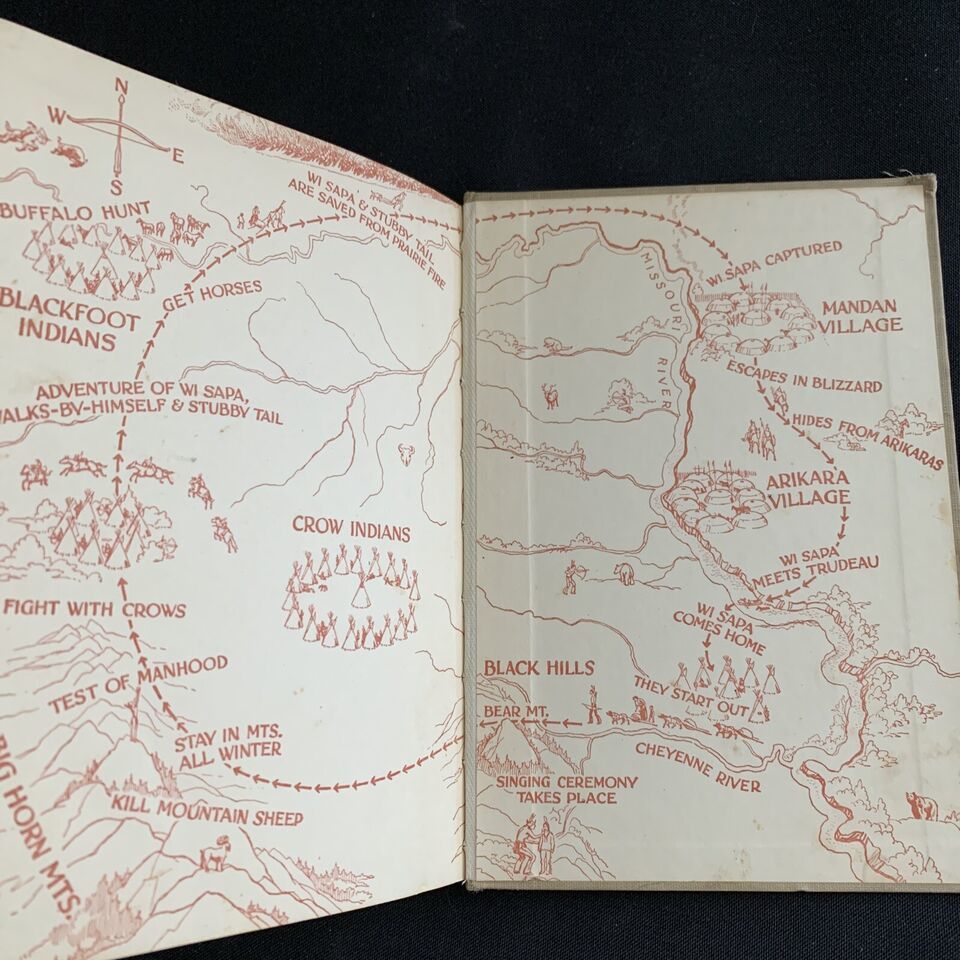 N
W
E
S
WI SAPA & STUBBY TAIL
ARE SAVED FROM PRAIRIE FIRE
BUFFALO HUNT
GET HORSES
BLACKFOOT
INDIANS
ADVENTURE OF WI SAPA,
WALKS-BY-HIMSELF & STUBBY TAIL
CROW INDIANS
FIGHT WITH CROWS
TEST OF MANHOOD
STAY IN MTS.
ALL WINTER
KILL MOUNTAIN SHEEP
BIG HORN MTS.
MISSOURI
RIVER
WI SAPA CAPTURED
MANDAN
VILLAGE
ESCAPES IN BLIZZARD
HIDES FROM ARIKARAS
ARIKARA
VILLAGE
WI SAPA
MEETS TRUDEAU
WI SAPA
COMES HOME
BLACK HILLS
THEY START OUT
BEAR MT.
CHEYENNE RIVER
SINGING CEREMONY
TAKES PLACE